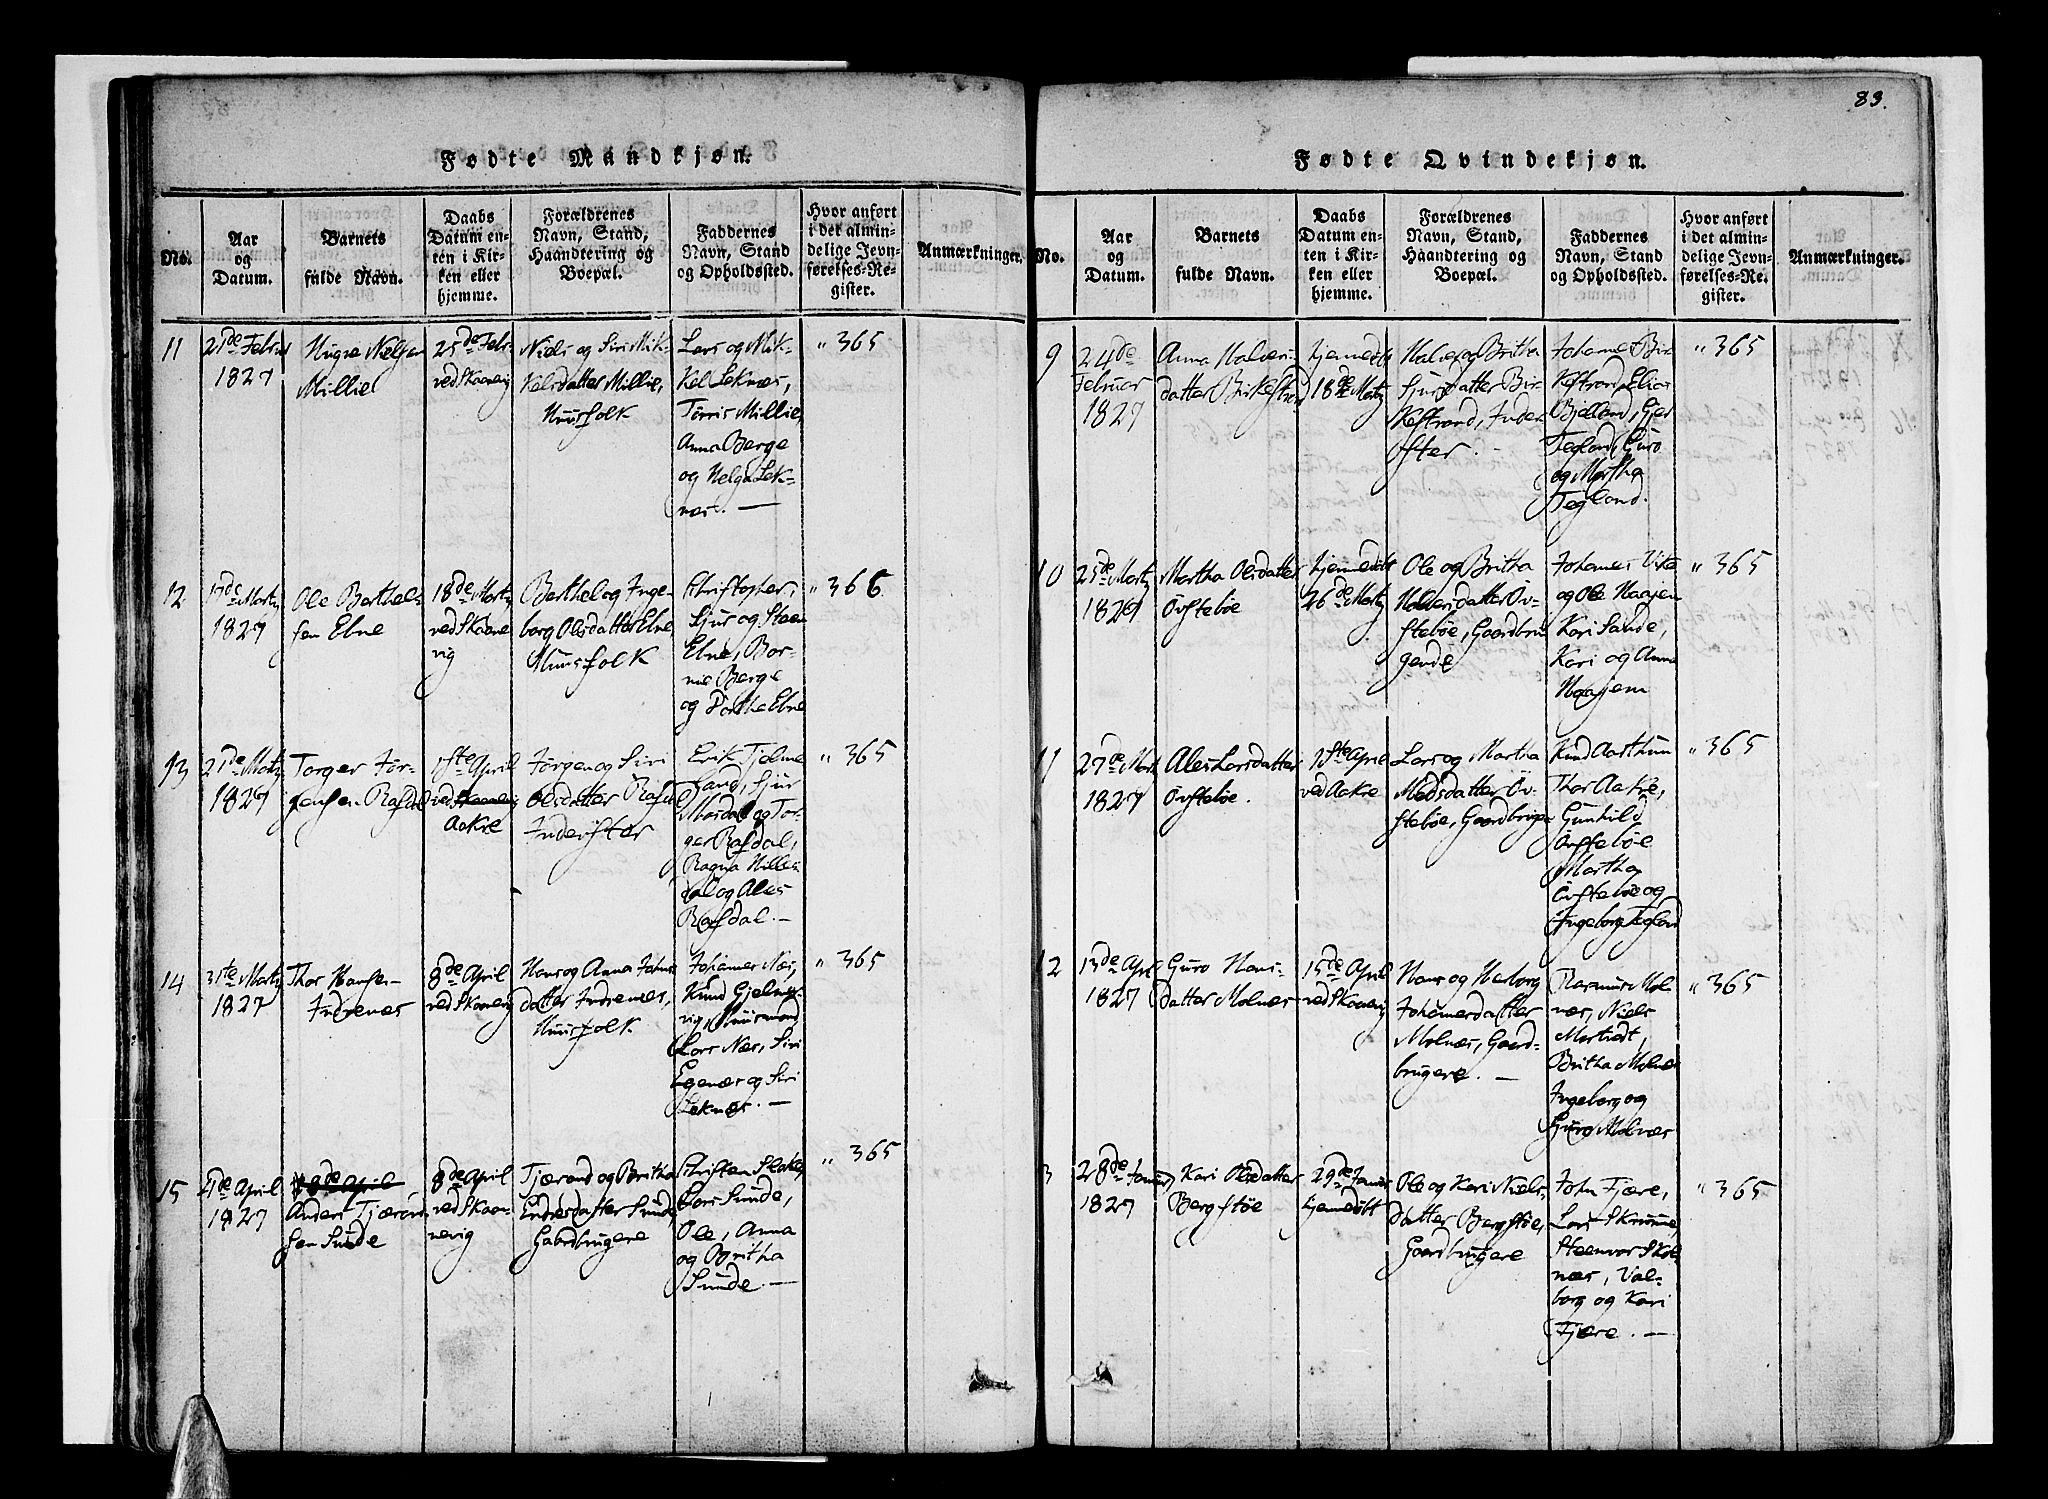 83.
Fødte Mandkjøn.
No.
Aar
og
Datum.
Barnets
fulde Navn.
Daabs
Datum en-
ten i Kir-
ken eller
hjemme.
Forældrenes
Navn, Stand,
Haandtering og
Boepæl.
Faddernes
Navn, Stand
og Opholdssted.
Hvor anført
i det almin-
delige Jevn-
førelses-Re-
gister.
Anmærkninger.
11
21de Febru
1827
Nielsen
Millie
25de Febr
ved Skaanevig
Niels og Siri Mik-
kelsdatter Millie,
Huusfolk
Lars og Mik-
kel Leknæs,
Tørris Millie,
Anna Berge
og Helga Lek-
næs. —
" 365
12
17de Martz
1827
Ole Barthels
sen Ebne
18de Martz
ved Skaane
vig
Barthel og Inge-
borg Olsdatter Ebne
Huusfolk
Christopher,
Sjur og Steen
Ebne, Bor-
nil Berge
og Dorthe Ebne
" 366
13
21de Martz
1827
Torger Jør-
gensen Rafdal
1ste April
ved Skaanevig
Aakre
Jørgen og Siri
Olsdatter Rafdal
Inderster
Erik Tjelme
land, Sjur
Mosdal og Tor-
ger Rafdal,
Ragna Milles
dal og Ales
Rafdal. —
" 365
14
31te Martz
1827
Thor Hansen
Indrenæs
8de April
ved Skaanevig
Hans og Anna Johns
datter Indrenæs,
Huusfolk
Johannes Næs,
Knud Gjelme-
vig, Huusmand
Lars Næs, Siri
Egenæs og Siri
Leknæs. —
" 365
15
4de April
1827
8de April
Anders Tjærand
sen Sunde
8de April
ved Skaa-
nevig
Tjærand og Britha
Endresdatter Sunde
Gaardbrugere
Christen
Lars Sunde,
Ole, Anna
og Britha
Sunde. —
" 365
Fødte Qvindekjøn.
No.
Aar
og
Datum.
Barnets
fulde Navn.
Daabs
Datum en-
ten i Kir-
ken eller
hjemme.
Forældrenes
Navn, Stand,
Haandtering og
Boepæl.
Faddernes
Navn, Stand
og Opholdssted.
Hvor anført
i det almin-
delige Jevn-
førelses-Re-
gister.
Anmærkninger.
9
24de
Februar
1827
Anna Halvers-
datter Birkestrand
hjemedøbt
18de Martz
Halver og Britha
Sjursdatter Bir-
kestrand, Inder
ster. —
Johannes Bir
kestrand, Elias
Bjelland, Gjer
Tegland, Guro
og Martha
Tegland.
" 365
10
25de Martz
1827
Martha Olsdatter
Øvstebøe
hjemedøbt
26de Martz
Ole og Britha
Haldorsdatter Øv-
stebøe, Gaardbru
gende
Johannes Vika
og Ole Haajem
Kari Sande,
Kari og Anna
Haajem
" 365
11
27de Mart
1827
Ales Larsdatter
Øvstebøe.
1ste April
ved Aakre
Lars og Martha
Madsdatter Øv-
stebøe, Gaardbruge
Knud Aarthun
Thor Aakre,
Gunhild
Øvstebøe
Martha
Øvstebøe og
Ingeborg Tegland
" 365
12
13de April
1827
Guro Hans-
datter Molnæs
15de April
ved Skaanevig
Hans og Herborg
Johannesdatter
Molnæs, Gaard-
brugere. —
Rasmus Mol
næs, Niels
Martvedt,
Britha Molnæs
Ingeborg og
Guro Molnæs
" 365
3
28de Januar
1827
Kari Olsdatter
Bergstøe
29de Januar
hjemedøbt
Ole og Kari Niels-
datter Bergstøe,
Gaardbrugere
John Fjære,
Lars Skrømme,
Steenvor Skol
næs, Val-
borg og Kari
Fjære. —
" 365